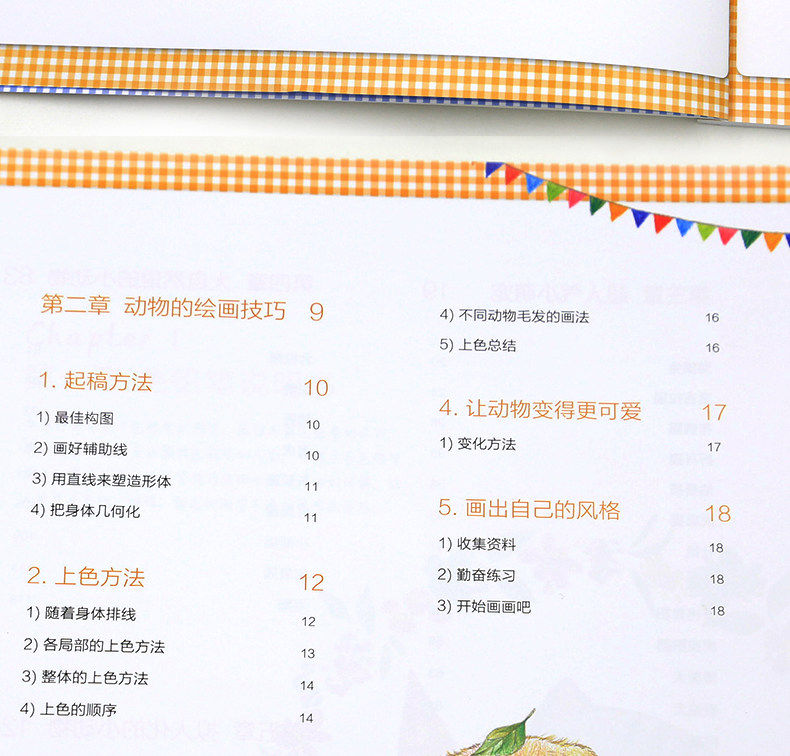 第二章 动物的绘画技巧 9
1. 起稿方法 10
1) 最佳构图 10
2) 画好辅助线 10
3) 用直线来塑造形体 11
4) 把身体几何化 11
2. 上色方法 12
1) 随着身体排线 12
2) 各局部的上色方法 13
3) 整体的上色方法 14
4) 上色的顺序 14
4) 不同动物毛发的画法 16
5) 上色总结 16
4. 让动物变得更可爱 17
1) 变化方法 17
5. 画出自己的风格 18
1) 收集资料 18
2) 勤奋练习 18
3) 开始画画吧 18